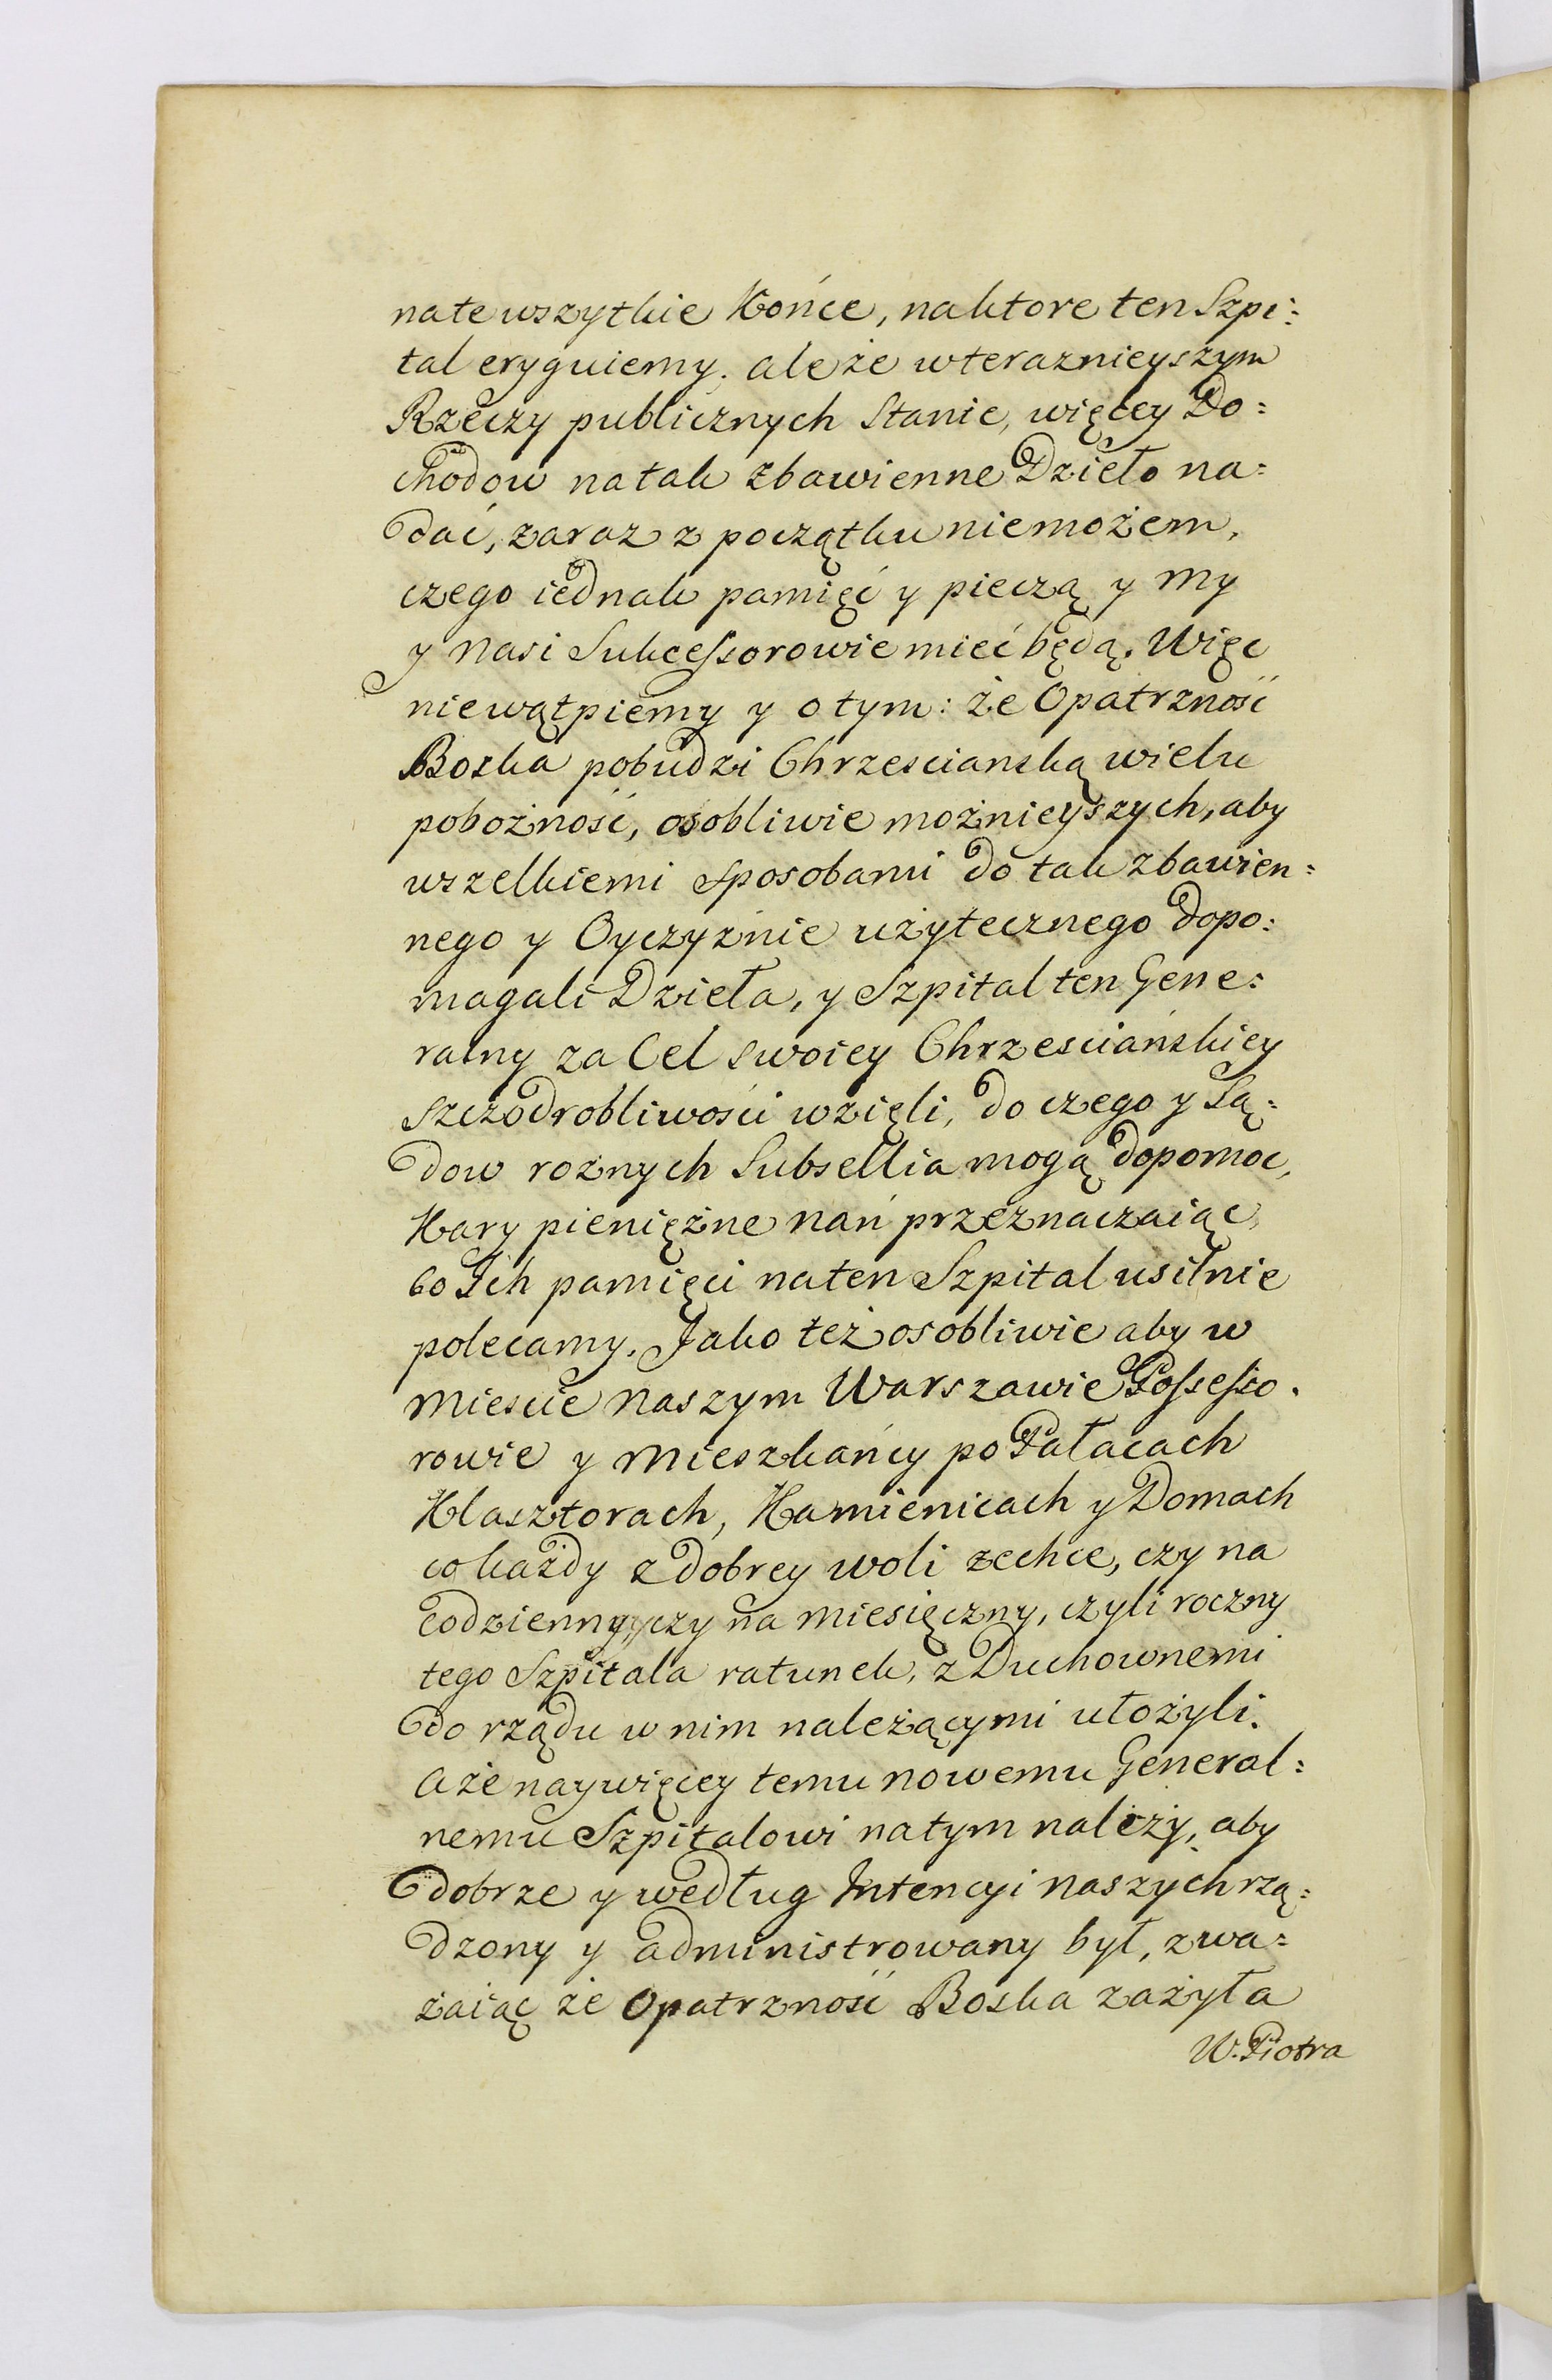 na te wszytkie Końce, na ktore ten Szpi:
tal eryguiemy. ale że w teraznieyszym
Rzeczy publicznych Stanie, więcey Do:
chodow na tak zbawienne Dzieło na:
dać, zaraz z początku niemożem,
czego iednak pamięć y pieczą y my
y nasi Sukcessorowie mieć będą. Więc
niewątpiemy y o tym: że Opatrzność
Boska pobudzi Chrzesciańską wielu
pobożność, osobliwie możnieyszych, aby
wszelkiemi sposobami do tak zbawien:
nego y Oyczyznie użytecznego dopo:
magali Dzieła, y Szpital ten Gene:
ralny za Cel swoiey Chrzesciańskiey
szczodrobliwości wzięli, do czego y Są:
dow rożnych Subsellia mogą dopomoc,
Kary pieniężne nań przeznaczaiąc,
co Ich pamięci na ten Szpital usilnie
polecamy. Jako też osobliwie aby w
Miescie Naszym Warszawie Possesso.
rowie y Mieszkańcy po Pałacach
Klasztorach, Kamienicach y Domach
co każdy z dobrey woli zechce, czy na
codzienny, czy na miesięczny, czyli roczny
tego Szpitala ratunek, z Duchownemi
do rządu w nim należącymi ułożyli.
A że naywięcey temu nowemu General:
nemu Szpitalowi na tym należy, aby
dobrze y według Intencyi naszych rzą:
dzony y administrowany był, zwa:
żaiąc że Opatrzność Boska zażyła
W. Piotra